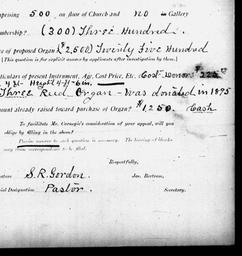 prising 500 on floor of Church and no in Gallery
mbership? (300) Three Hundred.
ce of proposed Organ $(2,500) Twenty Five Hundred
[This question is for explicit answers by applicants after investigation by them.]
ticulars of present Instrument, Age, Cost Price, Etc. Cost Donors 225
Three Reed Organ - was donated in 1895
mount already raised toward purchase of Organ? $1,250. Cash
To facilitate Mr. Carnegie's consideration of your appeal, will you
oblige by filling in the above?
Precise answer to each question is necessary. The leaving of blanks
Respectfully,
nature S. R. Gordon. Jas. Bertram,
cial Designation Pastor. Secretary.